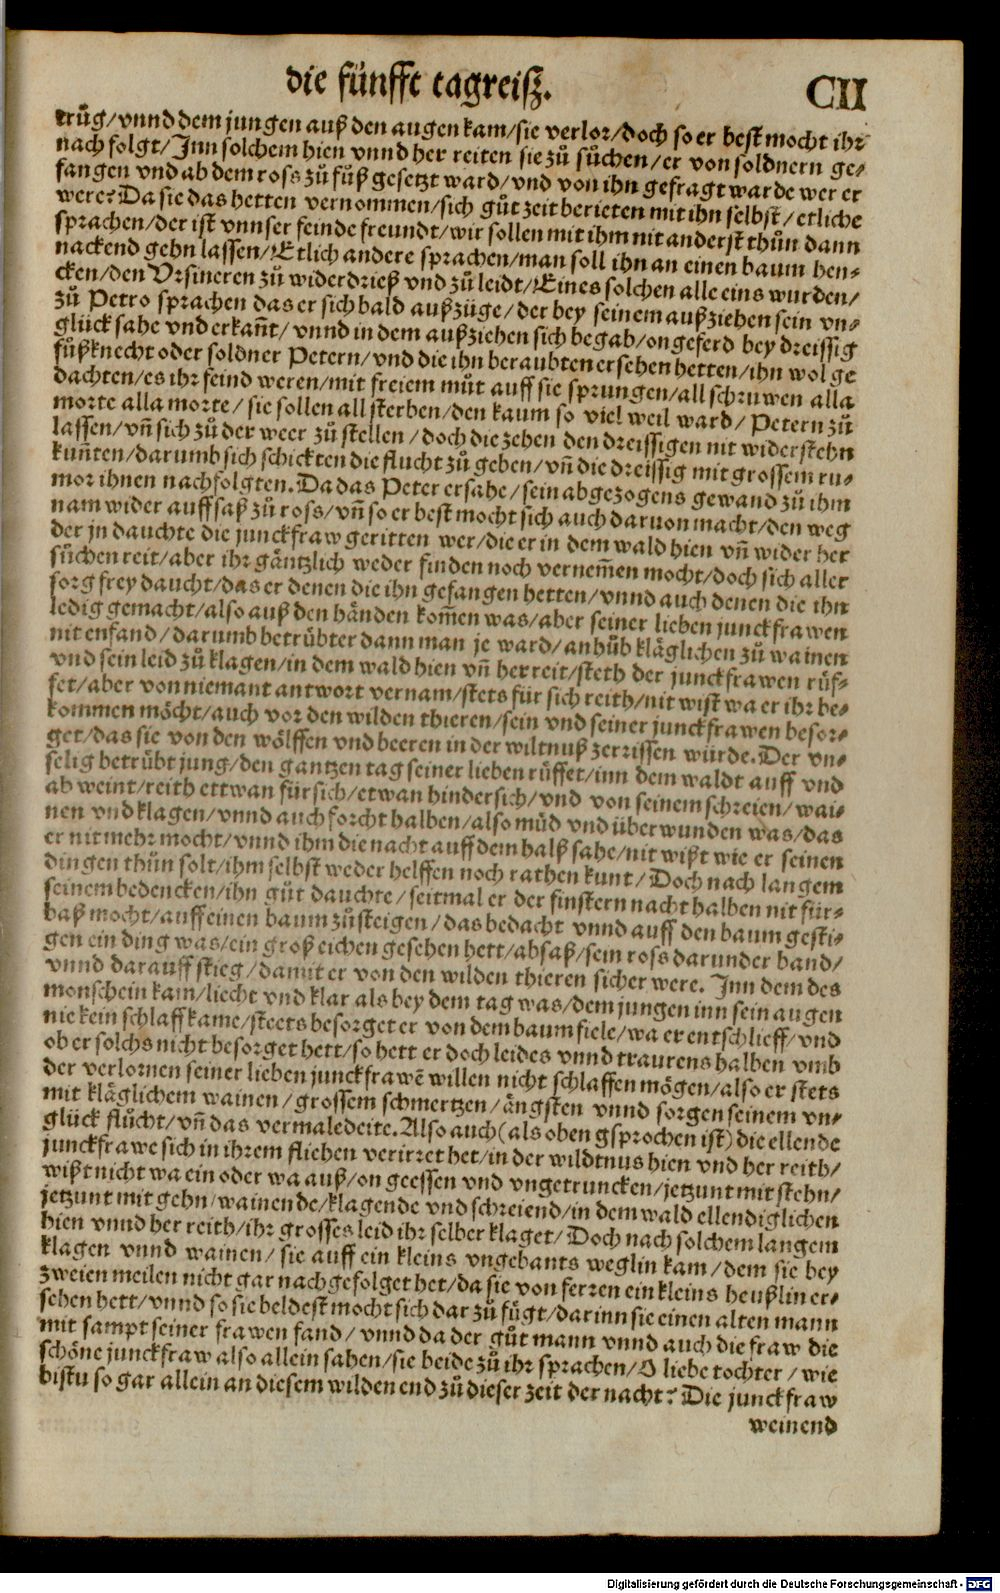 die fünfft tagreisz.
CII
trůg/vnnd dem jungen auß den augen kam/sie verlor/doch so er best mocht ihr
nach folgt/Inn solchem hien vnnd her reiten sie zů sůchen/er von soldnern ge-
fangen vnd ab dem ross zů fůß gesetzt ward/vnd von ihn gefragt warde wer er
were? Da sie das hetten vernommen/sich gůt zeit berieten mit ihn selbst/etliche
sprachen/der ist vnnser feinde freundt/wir sollen mit ihm nit anderst thůn dann
nackend gehn lassen/Etlich andere sprachen/man soll ihn an einen baum hen-
cken/den Vrsineren zů widerdrieß vnd zů leidt/Eines solchen alle eins wurden/
zů Petro sprachen das er sich bald außzüge/der bey seinem außziehen sein vn-
glück sahe vnd erkañt/vnnd in dem außziehen sich begab/ongeferd bey dreissig
fůßknecht oder soldner Petern/vnd die ihn beraubten ersehen hetten/ihn wol ge
dachten/es ihr feind weren/mit freiem můt auff sie sprungen/all schruwen alla
morte alla morte/sie sollen all sterben/den kaum so viel weil ward/Petern zů
lassen/vñ sich zů der weer zů stellen/doch die zehen den dreissigen nit widerstehn
kuñten/darumb sich schickten die flucht zů geben/vñ die dreissig mit grossem ru-
mor ihnen nachfolgten. Da das Peter ersahe/sein abgezogens gewand zů ihm
nam wider auffsaß zů ross/vñ so er best mocht sich auch daruon macht/den weg
der jn dauchte die junckfraw geritten wer/die er in dem wald hien vñ wider her
sůchen reit/aber ihr gäntzlich weder finden noch vernem̃en mocht/doch sich aller
sorg frey daucht/das er denen die ihn gefangen hetten/vnnd auch denen die ihn
ledig gemacht/also auß den händen kom̃en was/aber seiner lieben junckfrawen
nit enfand/darumb betrübter dann man je ward/anhůb kläglichen zů wainen
vnd sein leid zů klagen/in dem wald hien vñ her reit/steth der junckfrawen růf-
fet/aber von niemant antwort vernam/stets für sich reith/nit wist wa er ihr be-
kommen möcht/auch vor den wilden thieren/sein vnd seiner junckfrawen besor-
get/das sie von den wölffen vnd beeren in der wiltnuß zerrissen würde. Der vn-
selig betrübt jung/den gantzen tag seiner lieben růffet/inn dem waldt auff vnd
ab weint/reith ettwan für sich/etwan hindersich/vnd von seinem schreien/wai-
nen vnd klagen/vnnd auch forcht halben/also můd vnd überwunden was/das
er nit mehr mocht/vnnd ihm die nacht auff dem halß sahe/nit wißt wie er seinen
dingen thůn solt/ihm selbst weder helffen noch rathen kunt/Doch nach langem
seinem bedencken/ihn gůt dauchte/seitmal er der finstern nacht halben nit für-
baß mocht/auff einen baum zů steigen/das bedacht vnnd auff den baum gesti-
gen ein ding was/ein groß eichen gesehen hett/absaß/sein ross darunder band/
vnnd darauff stieg/damit er von den wilden thieren sicher were. Inn dem des
monschein kam/liecht vnd klar als bey dem tag was/dem jungen inn sein augen
nie kein schlaff kame/steets besorget er von dem baum fiele/wa er entschlieff/vnd
ob er solchs nicht besorget hett/so hett er doch leides vnnd traurens halben vmb
der verlornen seiner lieben junckfrawẽ willen nicht schlaffen mögen/also er stets
mit kläglichem wainen/grossem schmertzen/ängsten vnnd sorgen seinem vn-
glück flůcht/vñ das vermaledeite. Also auch (als oben gsprochen ist) die ellende
junckfrawe sich in ihrem fliehen verirret het/in der wildtnus hien vnd her reith/
wißt nicht wa ein oder wa auß/on geessen vnd vngetruncken/jetzunt mit stehn/
jetzunt mit gehn/wainende/klagende vnd schreiend/in dem wald ellendiglichen
hien vnnd her reith/ihr grosses leid ihr selber klaget/Doch nach solchem langem
klagen vnnd wainen/sie auff ein kleins vngebants weglin kam/dem sie bey
zweien meilen nicht gar nachgefolget het/da sie von ferren ein kleins heußlin er-
sehen hett/vnnd so sie beldest mocht sich dar zů fůgt/darinn sie einen alten mann
mit sampt seiner frawen fand/vnnd da der gůt mann vnnd auch die fraw die
schöne junckfraw also allein sahen/sie beide zů ihr sprachen/O liebe tochter/wie
bistu so gar allein an diesem wilden end zů dieser zeit der nacht? Die junckfraw
weinend
Digitalisierung gefördert durch die Deutsche Forschungsgemeinschaft - DFG